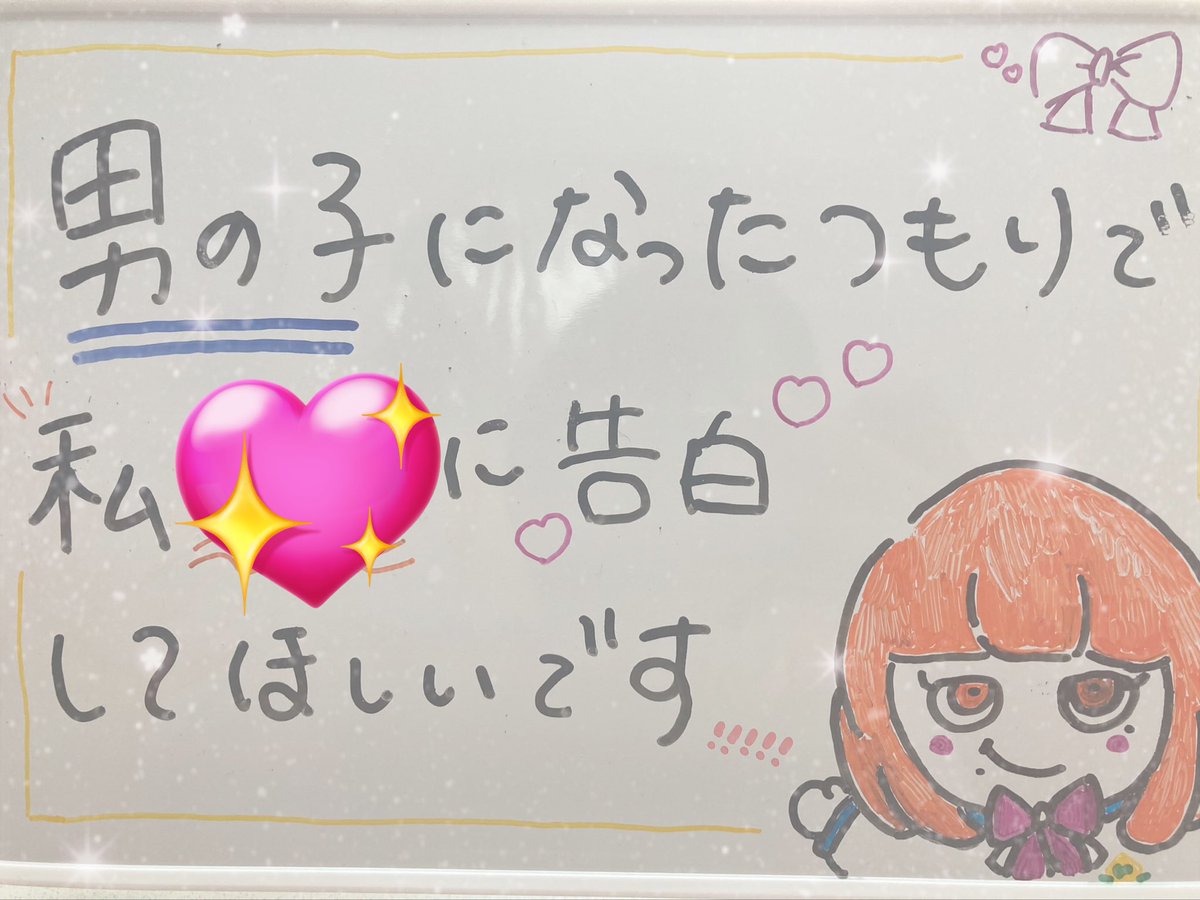 男の子になったつもりで
私に告白
してほしいです!!!!!